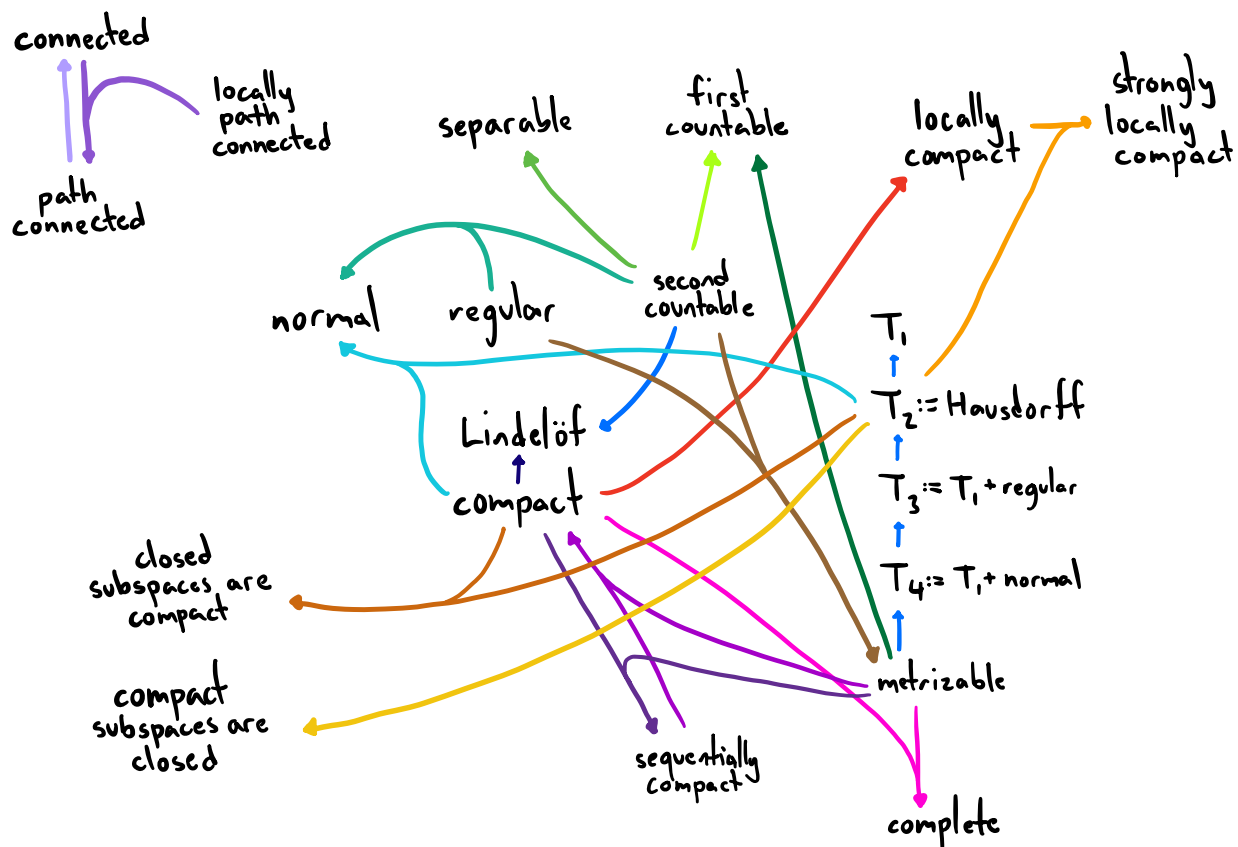 connected
locally
path
connected
path
connected
separable
first
countable
locally
compact
strongly
locally
compact
normal
regular
second
countable
T₁
T₂ := Hausdorff
Lindelöf
T₃ := T₁ + regular
compact
T₄ := T₁ + normal
closed
subspaces are
compact
compact
subspaces are
closed
metrizable
sequentially
compact
complete